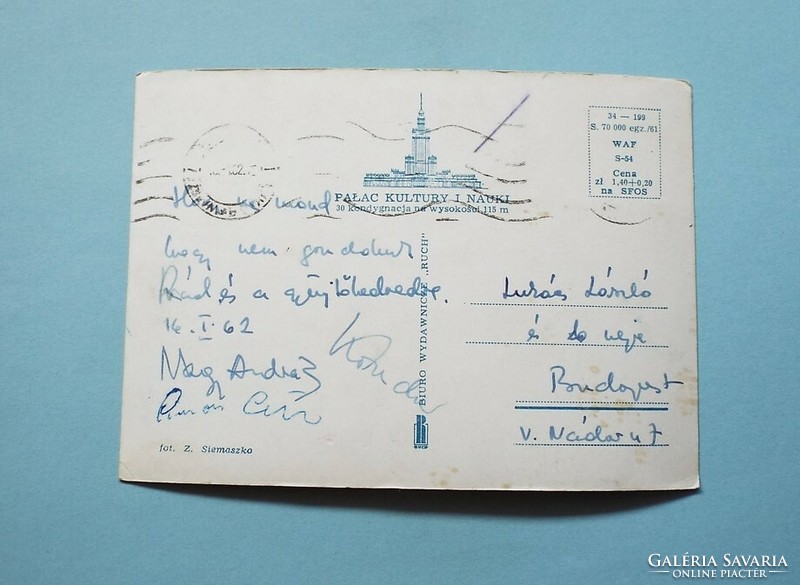 34 — 199
S. 70 000 egz./61
WAF
S-54
Cena
zł 1,40+0,20
na SFOS
PAŁAC KULTURY I NAUKI
30 kondygnacja na wysokości 115 m
Ha mond
hogy nem gondolunk
Rád és a gyűjtőkedvedre.
16. I. 62
Nagy András
Kondor
BIURO WYDAWNICZE „RUCH"
RUCH
Lukács László
és neje
Budapest
V. Nádor u 7
fot. Z. Siemaszko
GALÉRIA SAVARIA
ONLINE PIACTÉR